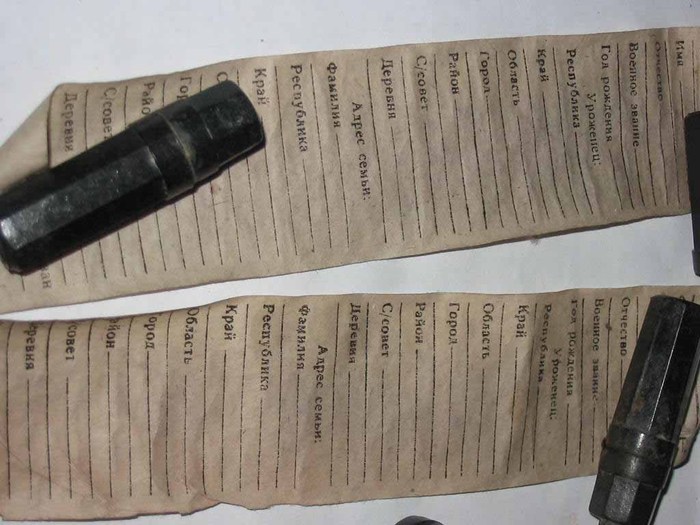 Имя
Отчество
Военное звание
Год рождения
Уроженец:
Республика
Край
Область
Город
Район
С/совет
Деревня
Адрес семьи:
Фамилия
Республика
Край
Район
С/совет
Деревня
Отчество
Военное звание
Год рождения
Уроженец:
Республика
Край
Область
Город
Район
С/совет
Деревня
Адрес семьи:
Фамилия
Республика
Край
Область